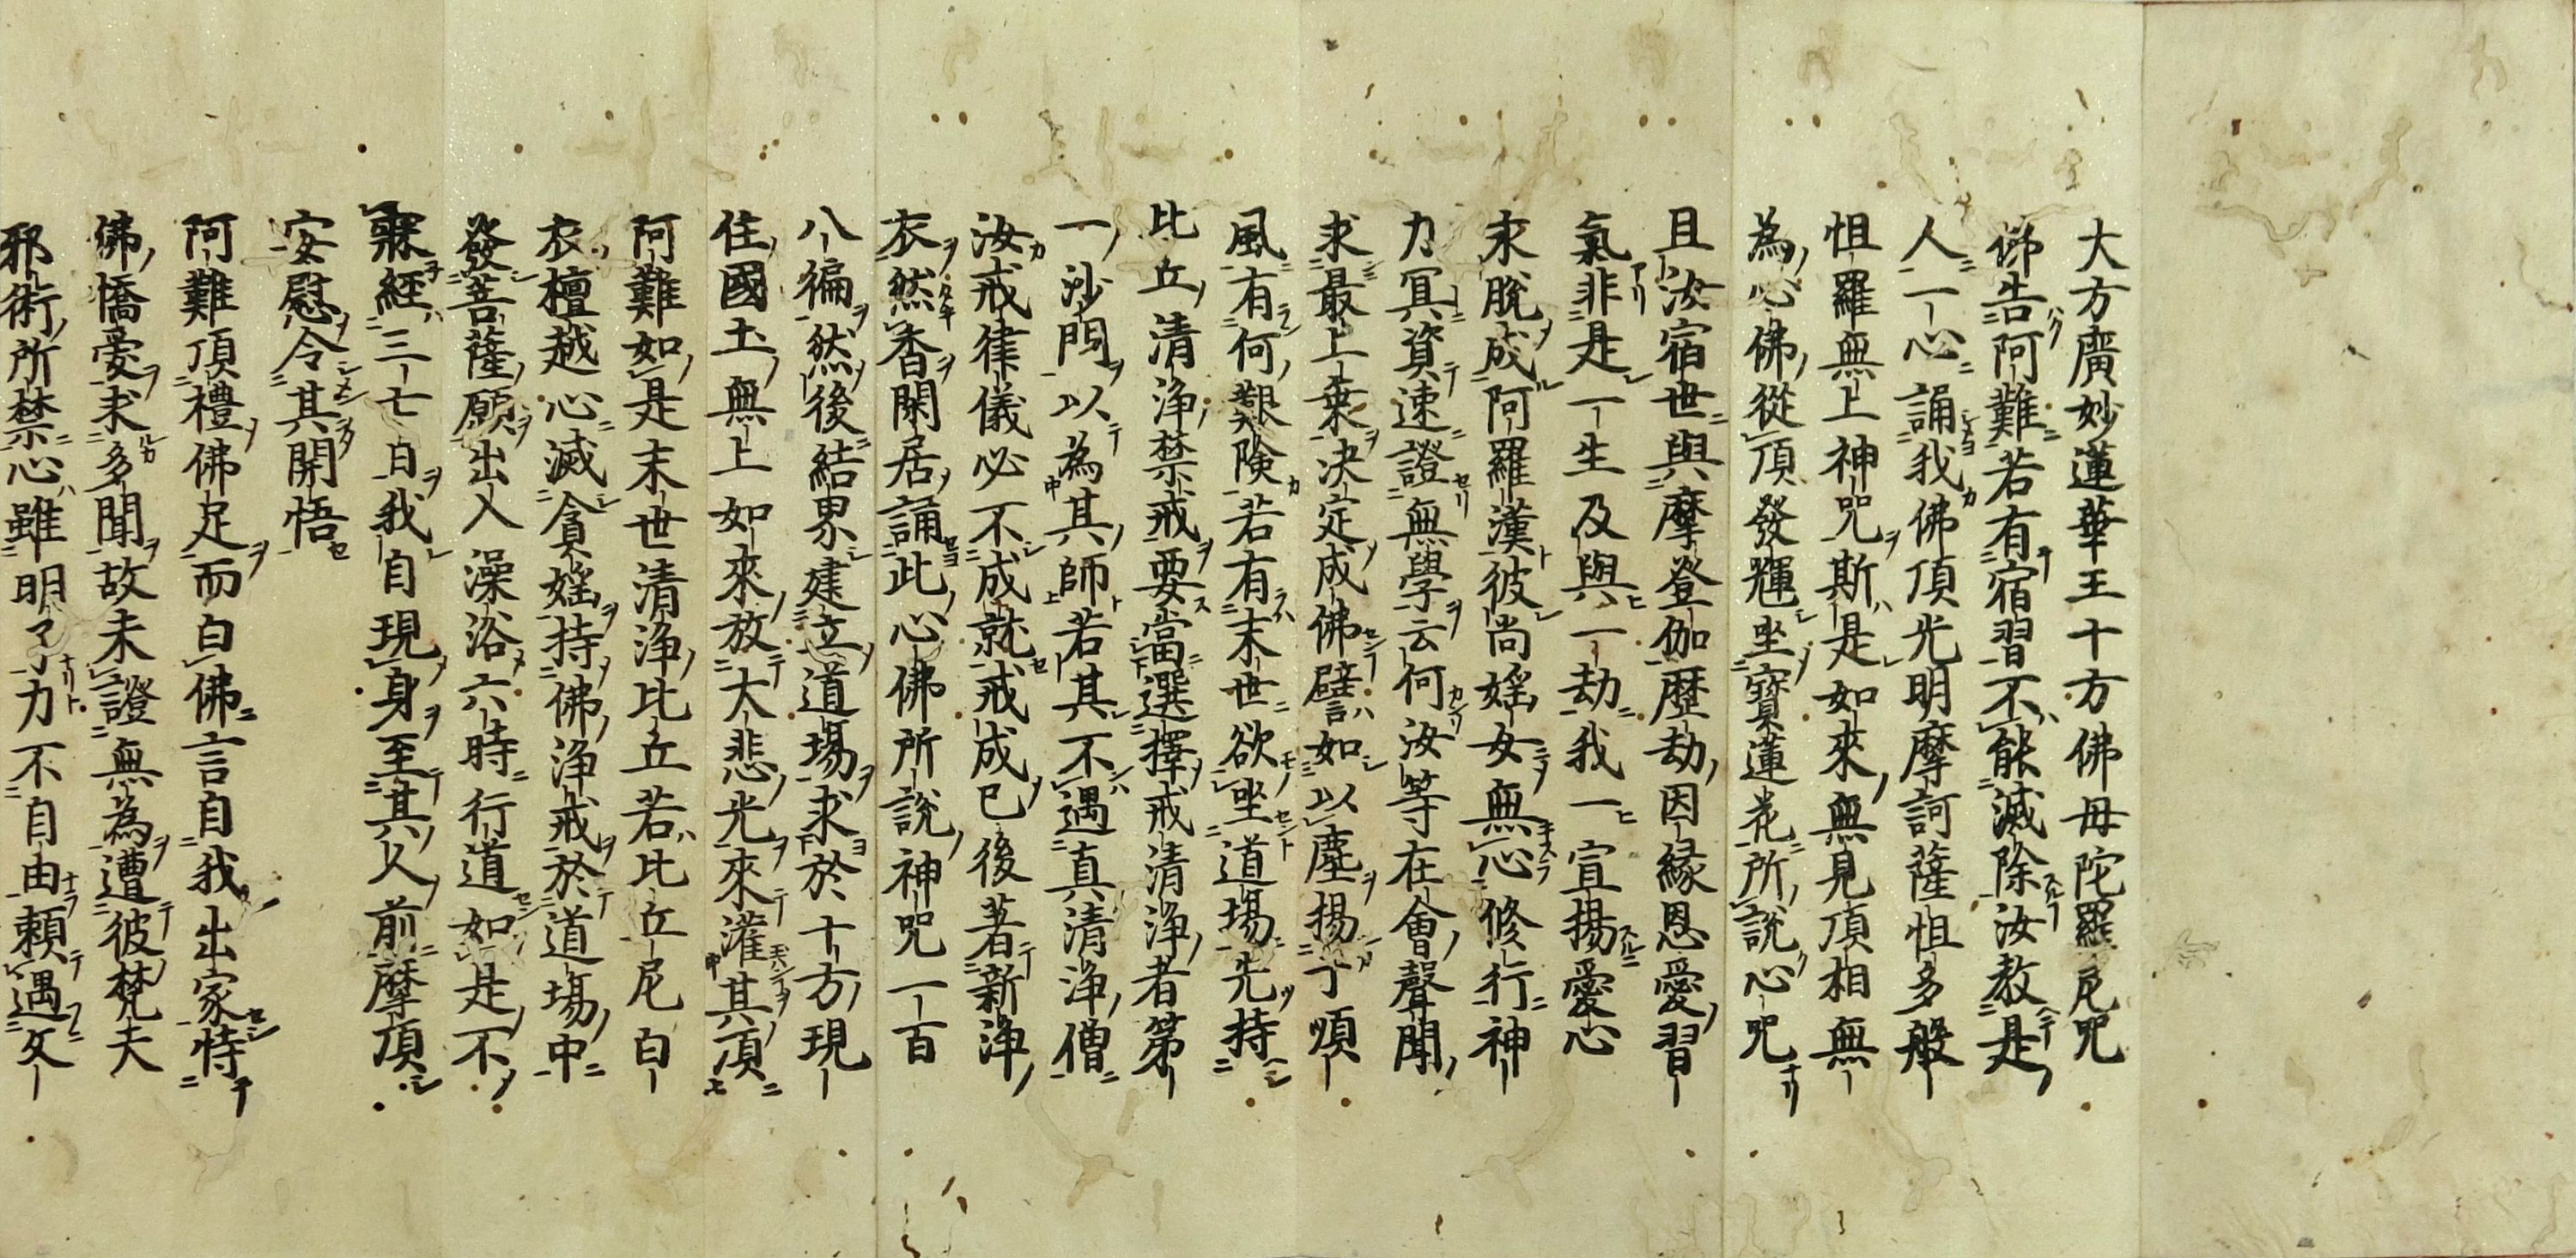 大方廣妙蓮華王十方佛母陀羅尼咒
佛告阿難若有宿習不能滅除汝教是
人一心誦我佛頂光明摩訶薩怛多般
怛羅無上神咒斯是如來無見頂相無
為心佛從頂發輝坐寶蓮花所說心咒
且汝宿世與摩登伽歷劫因緣恩愛習
氣非是一生及與一劫我一宣揚愛心
永脫成阿羅漢彼尚婬女無心修行神
力冥資速證無學云何汝等在會聲聞
求最上乘決定成佛譬如以塵揚于順
風有何艱險若有末世欲坐道場先持
比丘清淨禁戒要當選擇戒清淨者第
一沙門以為其師若其不遇真清淨僧
汝戒律儀必不成就戒成已後著新淨
衣然香閑居誦此心佛所說神咒一百
八徧然後結界建立道場求於十方現
住國土無上如來放大悲光來灌其頂
阿難如是末世清淨比丘若比丘尼白
衣檀越心滅貪婬持佛淨戒於道場中
發菩薩願出入澡浴六時行道如是不
寐經三七日我自現身至其人前摩頂
安慰令其開悟
阿難頂禮佛足而白佛言自我出家恃
佛憍愛求多聞故未證無為遭彼梵天
邪術所禁心雖明了力不自由賴遇文